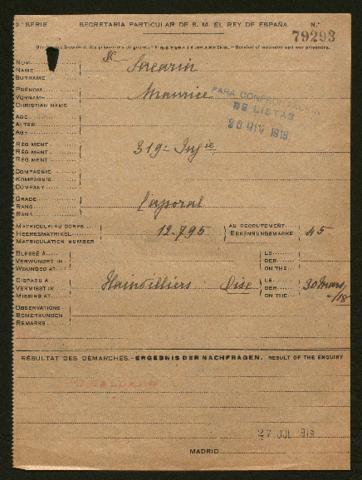 SÉRIE SECRETARIA PARTICULAR DE S. M. EL REY DE ESPAÑA N.º
79293
NOM
NAME
SURNAME
PRÉNOM Maurice
VORNAME
CHRISTIAN NAME
PARA CONFECCION
DE LISTAS
1918
AGE
ALTER
AGE
RÉGIMENT 319e Infie
REGIMENT
REGIMENT
COMPAGNIE
KOMPAGNIE
COMPANY
GRADE Caporal
RANG
RANK
MATRICULE AU CORPS 12.795 AU RECRUTEMENT 45
HEERESMATRIKEL ERKENNUNGSMARKE
MATRICULATION NUMBER
BLESSÉ À LE
VERWUNDET IN DER
WOUNDED AT ON THE
DISPARU À Hainvilliers Oise LE 30 Mars
VERMISST IN DER
MISSING AT ON THE -18
OBSERVATIONS
BEMERKUNGEN
REMARKS
RÉSULTAT DES DÉMARCHES.-ERGEBNIS DER NACHFRAGEN. RESULT OF THE ENQUIRY
27 JUL 1918
MADRID